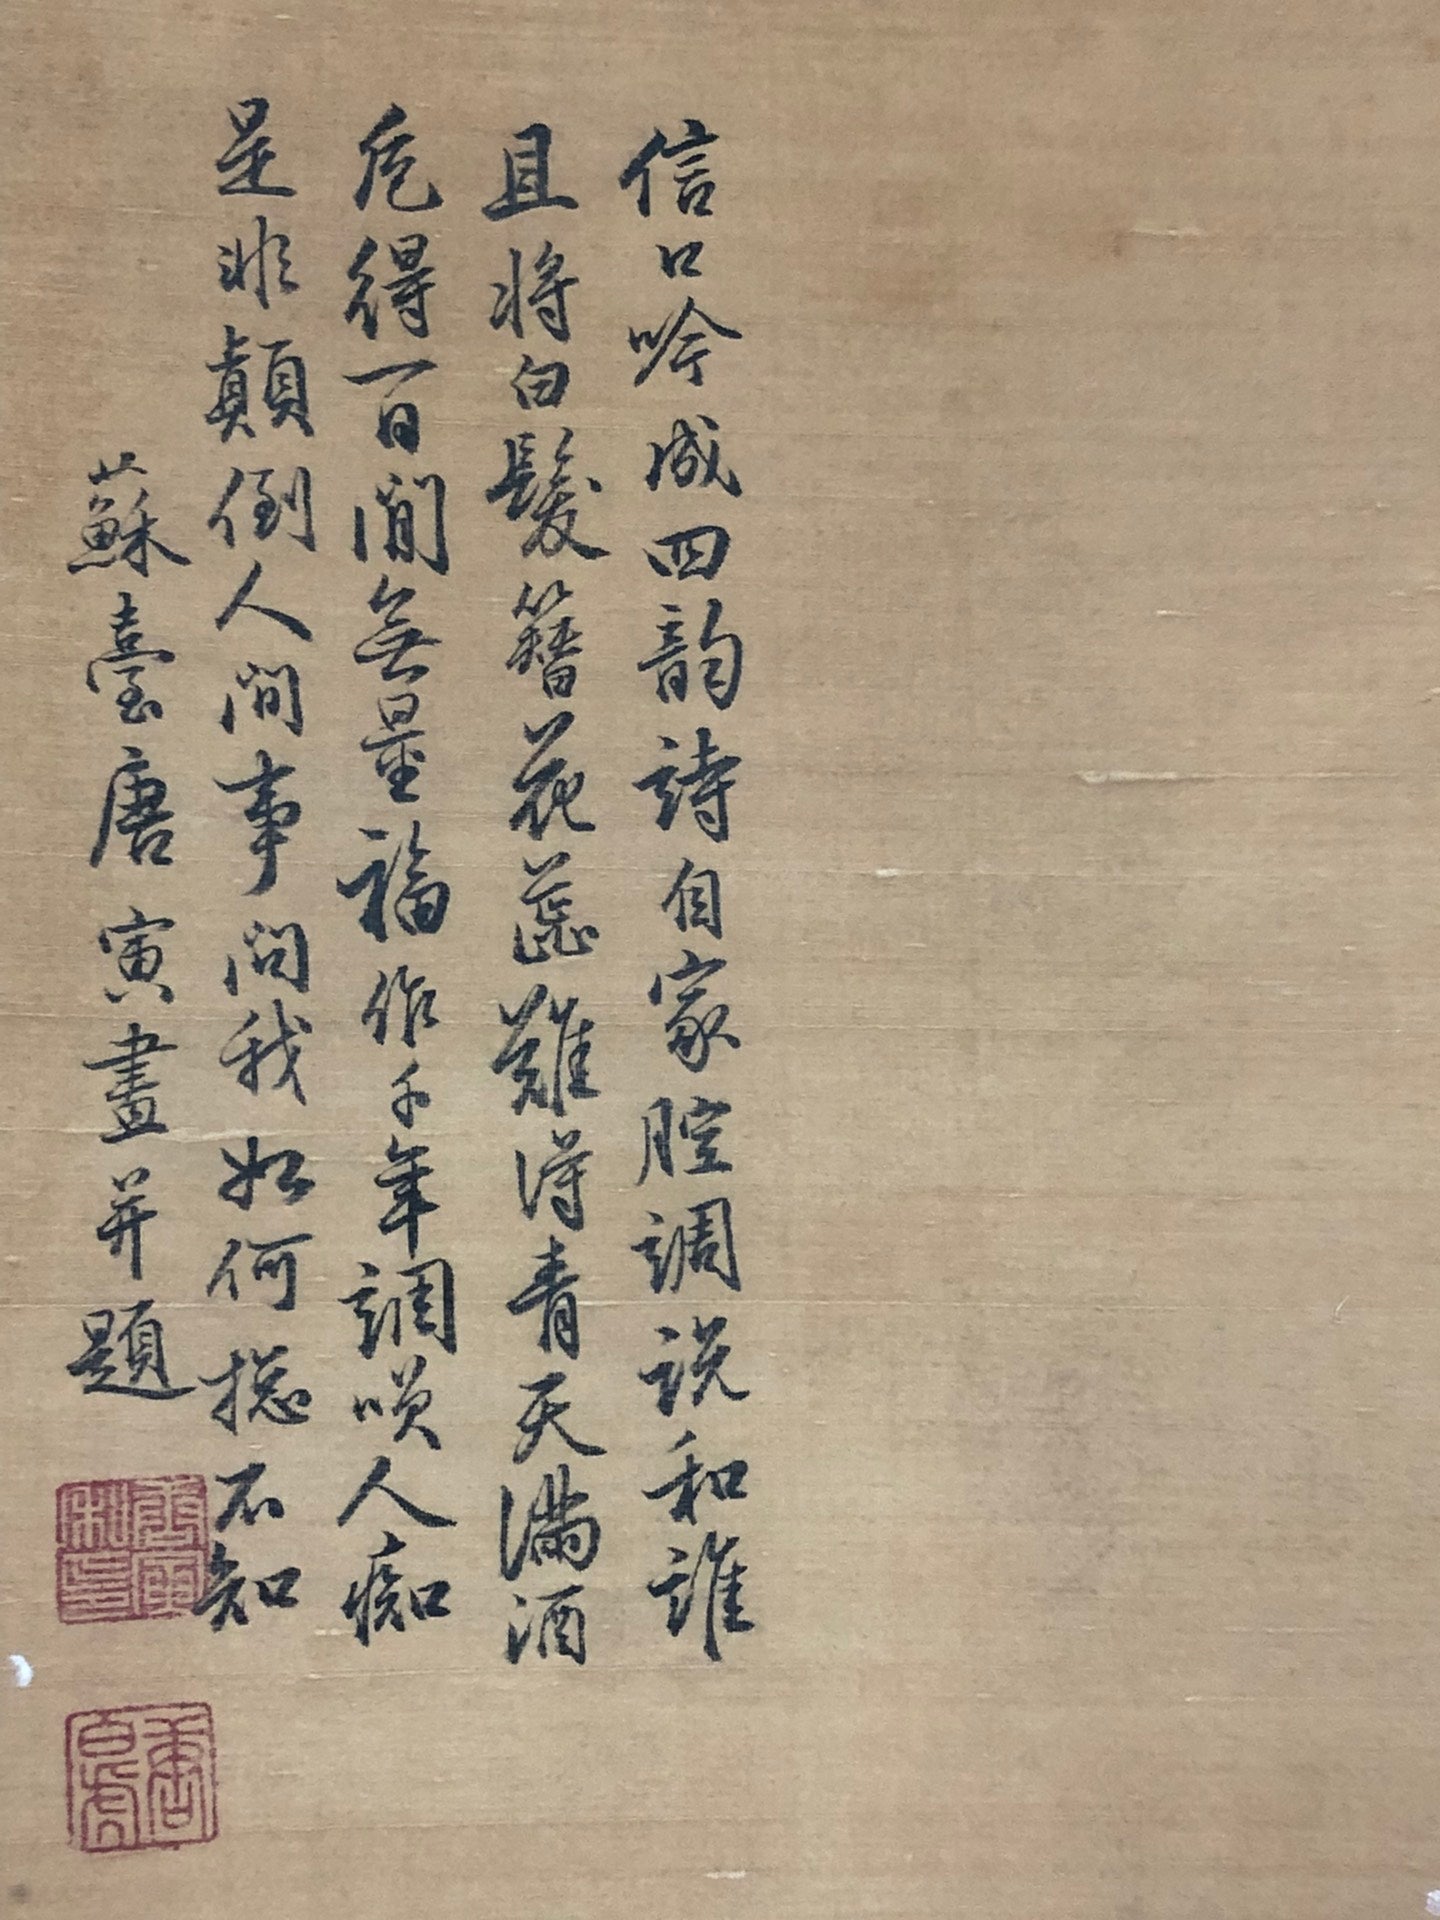 信口吟成四韵詩自家腔調說和誰
且將白髮簪花蕊難得青天滿酒
卮得一百閒無量福作千年調嘆人痴
是非顛倒人間事問我如何揔不知
蘇臺唐寅畫并題
唐寅